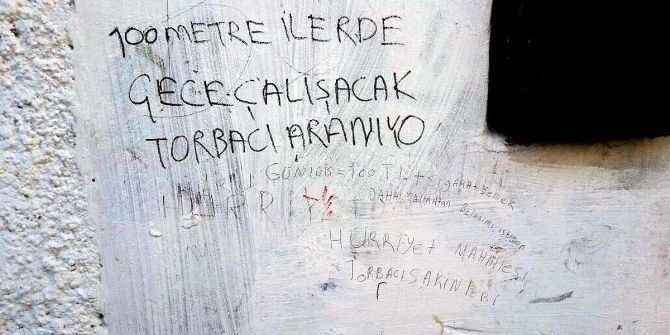 100 METRE İLERDE
GECE ÇALIŞACAK
TORBACI ARANIYO
GÜNLÜK = 100 TL + SİGARA + YEMEK
HÜRRİYET MAHALLESİ
TORBACI SAKINLERI